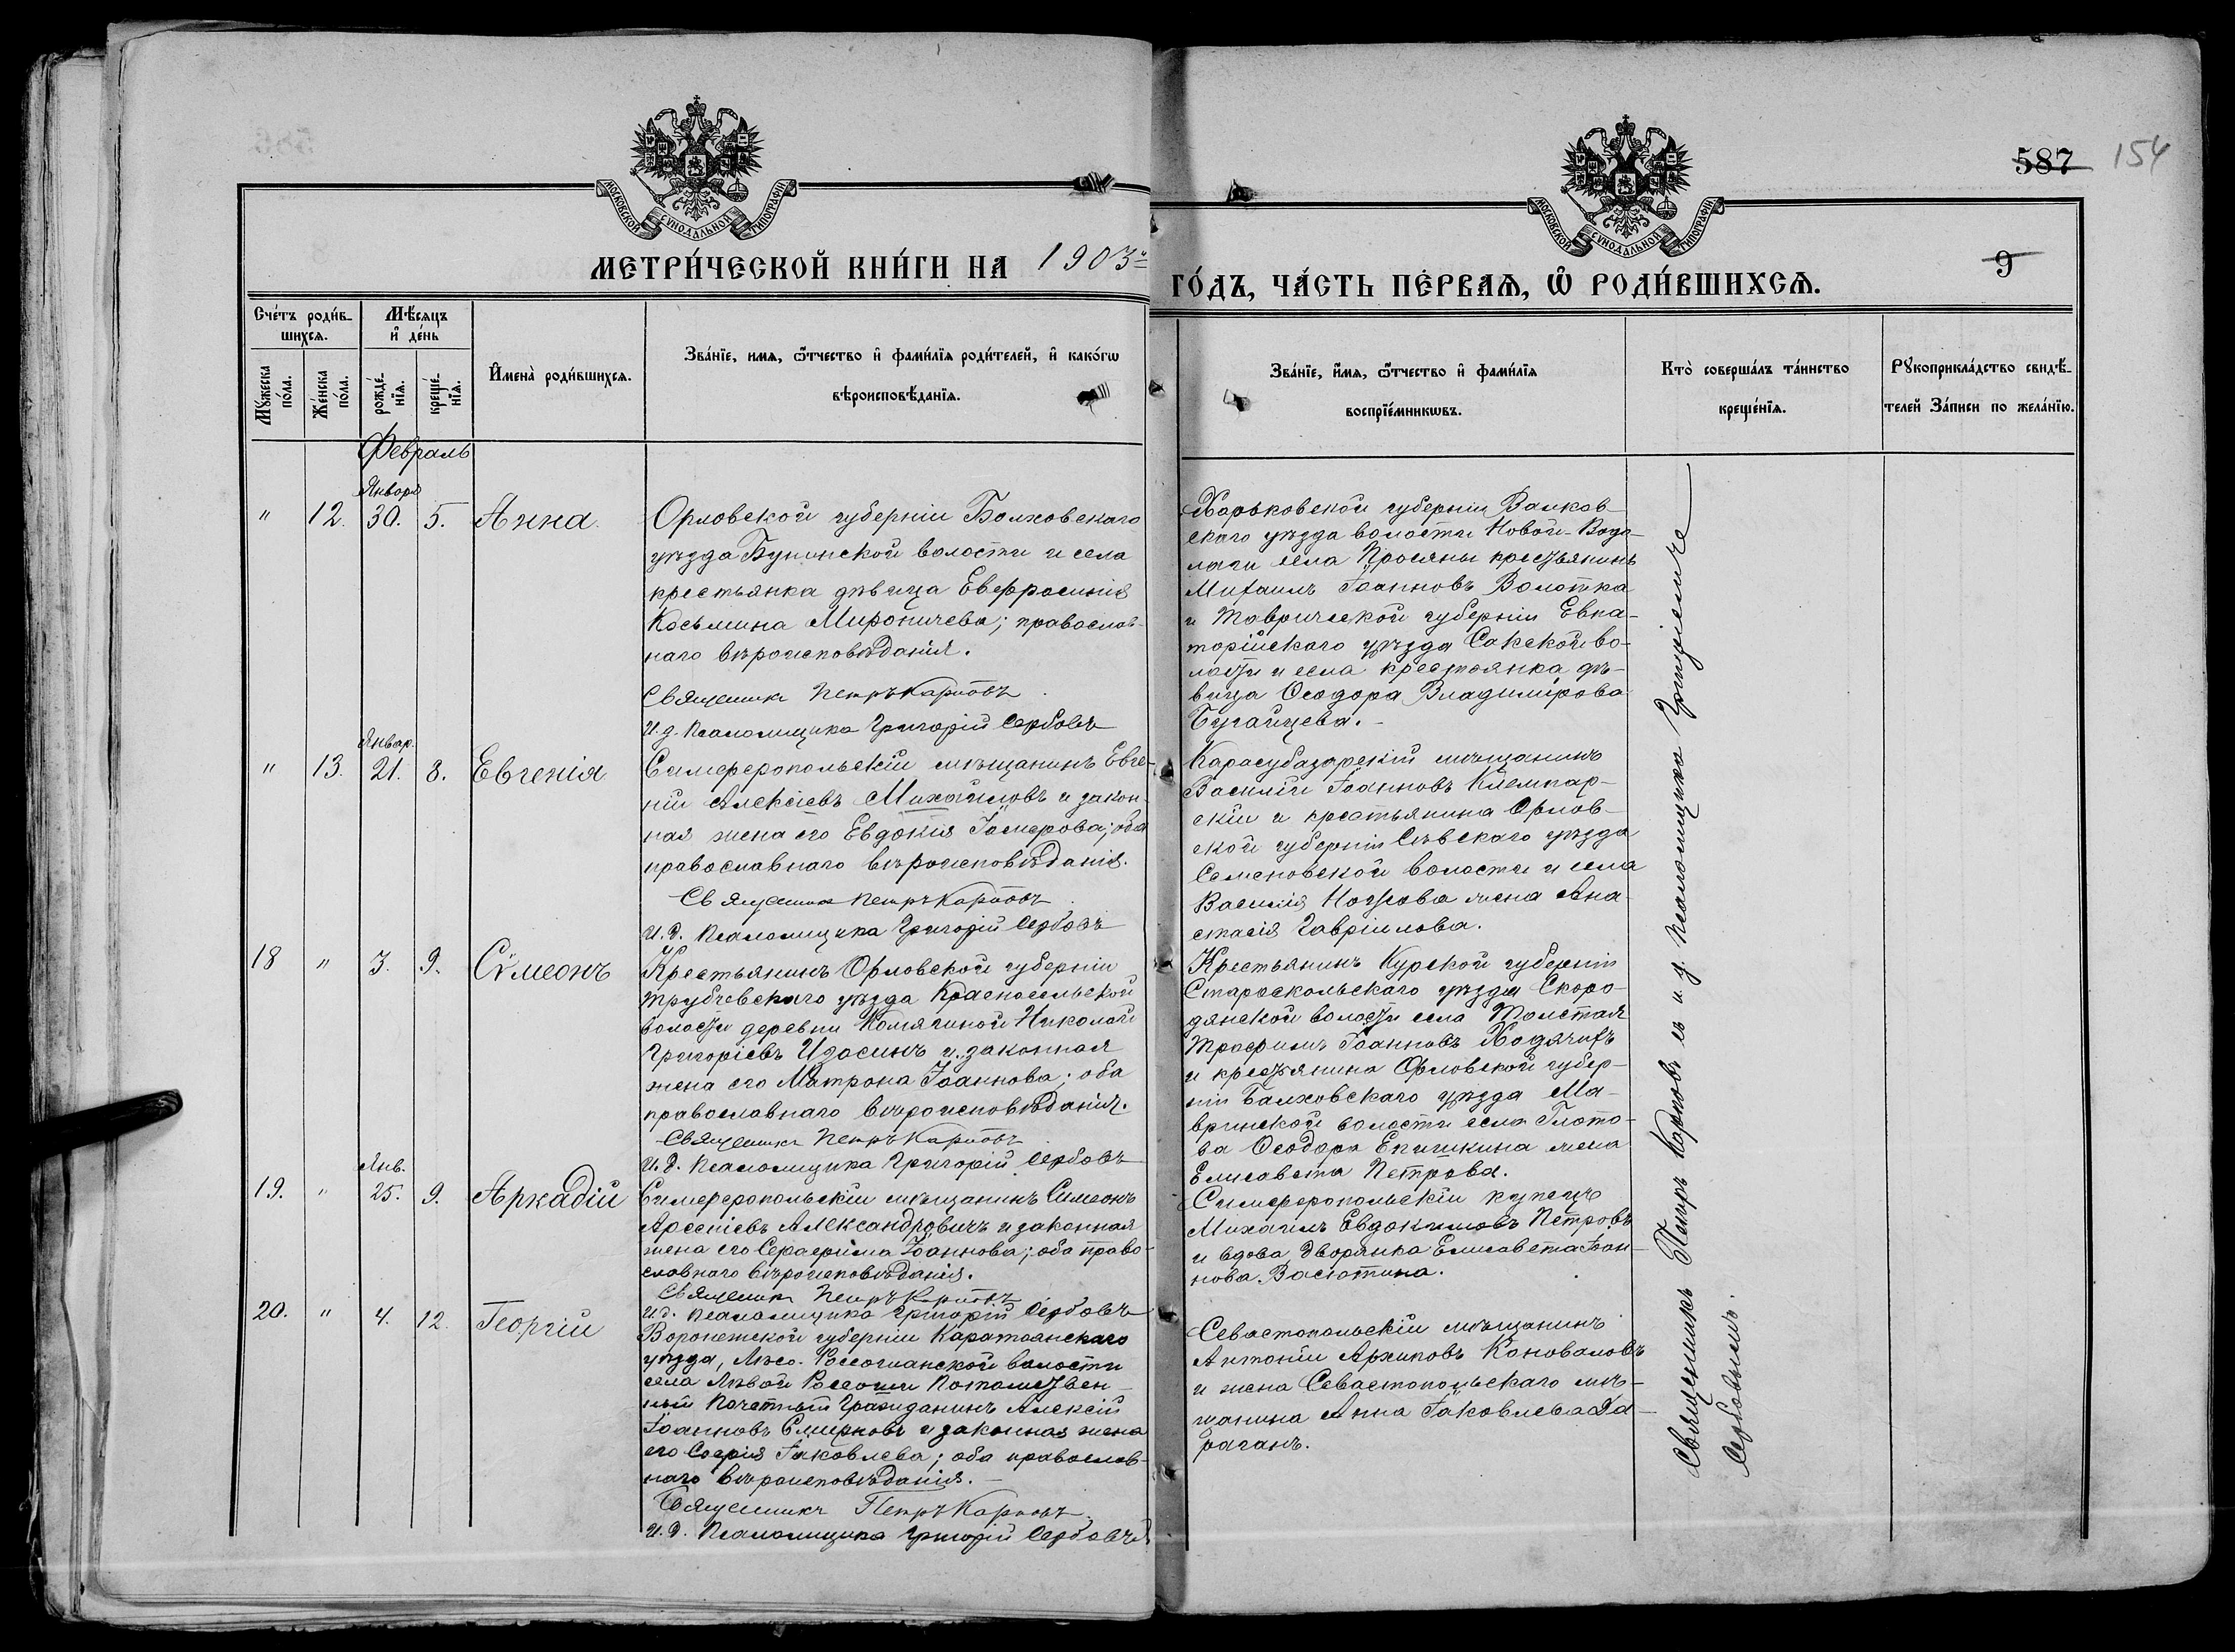 587 154
МОСКОВСКОЙ СѴНОДАЛЬНОЙ ТИПОГРАФІИ
МОСКОВСКОЙ СѴНОДАЛЬНОЙ ТИПОГРАФІИ
9
МЕТРИ́ЧЕСКОЙ КНИ́ГИ НА 1903й
ГО́ДЪ, ЧА́СТЬ ПЕ́РВАѦ, Ѿ РОДИ́ВШИХСѦ.
Сче́тъ роди́в-
шихсѧ.
Мѣ́сѧцъ
и҆ де́нь
Мꙋ́жеска по́ла.
Же́нска по́ла.
рожде́-
нїѧ.
креще́-
нїѧ.
И҆мена̀ роди́вшихсѧ.
Зва́нїе, имѧ, ѻ҆́тчество и҆ фами́лїѧ роди́телей, и҆ како́гѡ
вѣроисповѣ́данїѧ.
Зва́нїе, и҆́мѧ, ѻ҆́тчество и҆ фами́лїѧ
воспрїе́мникѡвъ.
Кто̀ соверша́лъ та́инство
креще́нїѧ.
Рꙋкоприкла́дство свидѣ́-
телей За́писи по жела́нїю.
Февраль
Января
" 12. 30. 5. Анна.
Орловской губерніи Болховскаго
уѣзда Бунинской волости и села
крестьянка дѣвица Евфросинія
Косьмина Мироничева; православ-
наго вѣроисповѣданія.
Священникъ Петръ Карповъ
И. д. Псаломщика Григорій Сербовъ
Харьковской губерніи Валков-
скаго уѣзда волости Новой-Водо-
лаги села Просяны крестьянинъ
Михаилъ Іоанновъ Волотка
и Таврической губерніи Евпа-
торійскаго уѣзда Сакской во-
лости и села крестьянка дѣ-
вица Ѳеодора Владимірова
Бугайцева.-
Январ.
" 13. 21. 8. Евгенія
Симферопольскій мѣщанинъ Евге-
ній Алексіевъ Михайловъ и закон-
ная жена его Евдокія Гомерова; оба
православнаго вѣроисповѣданія.
Священникъ Петръ Карповъ
И. д. Псаломщика Григорій Сербовъ
Карасубазарскій мѣщанинъ
Василій Іоанновъ Клемпар-
скій и крестьянина Орлов-
ской губерніи Сѣвскаго уѣзда
Семеновской волости и села
Василія жена Ана-
стасія Гавріилова.
18 " 3. 9. Сѵмеонъ
Крестьянинъ Орловской губерніи
Трубчевскаго уѣзда Красносельской
волости деревни Комягиной Николай
Григоріевъ Идосинъ и законная
жена его Матрона Іоаннова; оба
православнаго вѣроисповѣданія.
Священникъ Петръ Карповъ
И. д. Псаломщика Григорій Сербовъ
Крестьянинъ Курской губерніи
Староскольскаго уѣзда Скоро-
дянской волости села Толстая
Трофимъ Іоанновъ Ходячихъ
и крестьянина Орловской губер-
ніи Балховскаго уѣзда Ма-
вринской волости села Глото-
ва Ѳеодора Епишкина жена
Елисавета Петрова.
Янв.
19. " 25. 9. Аркадій
Симферопольскій мѣщанинъ Симеонъ
Арсеніевъ Александровичъ и законная
жена его Серафима Іоаннова; оба право-
славнаго вѣроисповѣданія.
Священникъ Петръ Карповъ
И. д. Псаломщика Григорій Сербовъ
Симферопольскій купецъ
Михаилъ Евдокимовъ Петровъ
и вдова дворянка Елисавета Іоан-
нова Васютина.
20. " 4. 12. Георгій
Воронежской губерніи Каратоянскаго
уѣзда, Лѣво-Россошанской волости
села Лѣвой Россоши Потомствен-
ный Почетный Гражданинъ Алексій
Іоанновъ Смирновъ и законная жена
его Софія Іаковлева; оба православ-
наго вѣроисповѣданія.-
Священникъ Петръ Карповъ
И. д. Псаломщика Григорій Сербовъ
Севастопольскій мѣщанинъ
Антоній Архиповъ Коноваловъ
и жена Севастопольскаго мѣ-
щанина Анна Іаковлева Да-
раганъ.
Священникъ Петръ Карповъ съ и. д. псаломщика Григоріемъ
Сербовымъ.